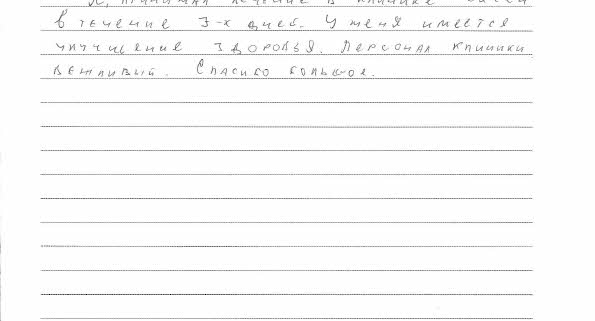 Я, принимал лечение в клинике
в течение 3-х дней. У меня имеется
улучшение здоровья. Персонал клиники
вежливый. Спасибо большое.